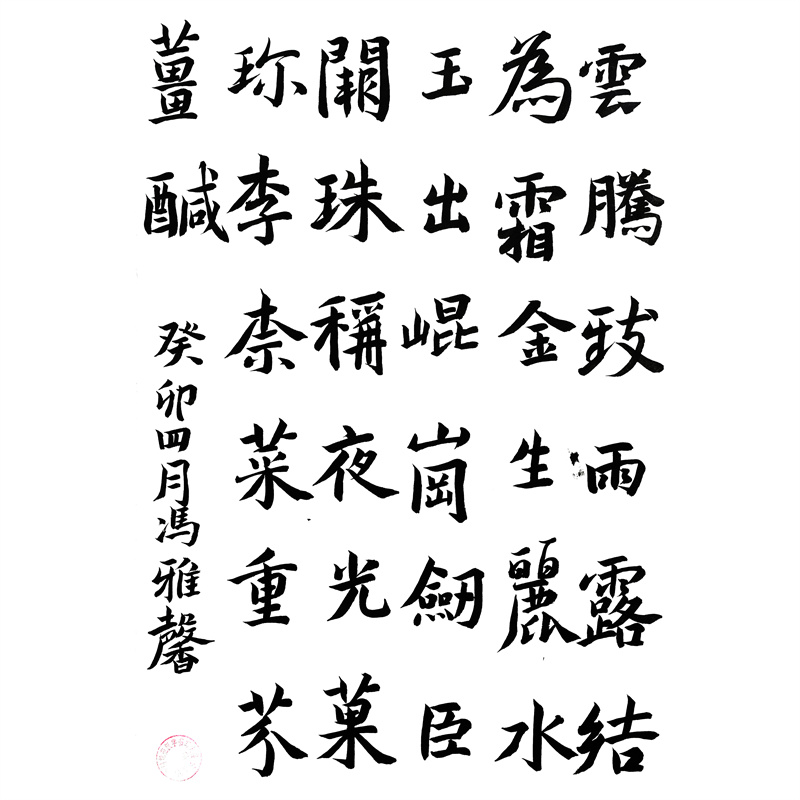 雲騰致雨露結
為霜金生麗水
玉出崐崗劒臣
闕珠稱夜光菓
珍李柰菜重芥
薑醎
癸卯四月馮雅馨